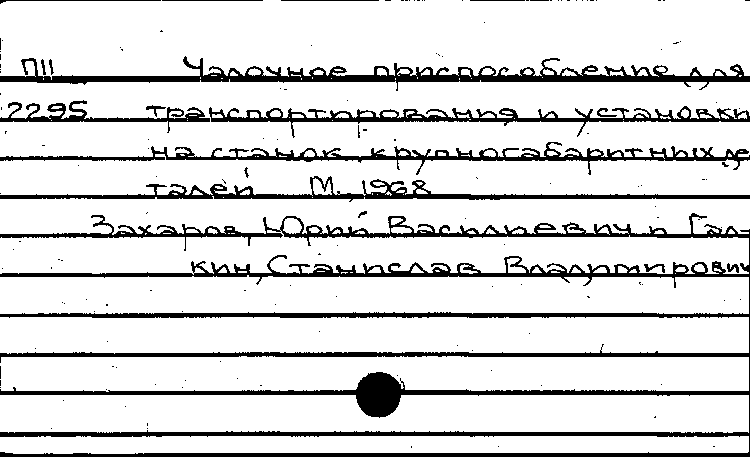 ПII Чалочное приспособление для
2295 транспортирования и установки
на станок крупногабаритных де
талей М., 1968
Захаров, Юрий Васильевич и Гал-
кин, Станислав Владимирович